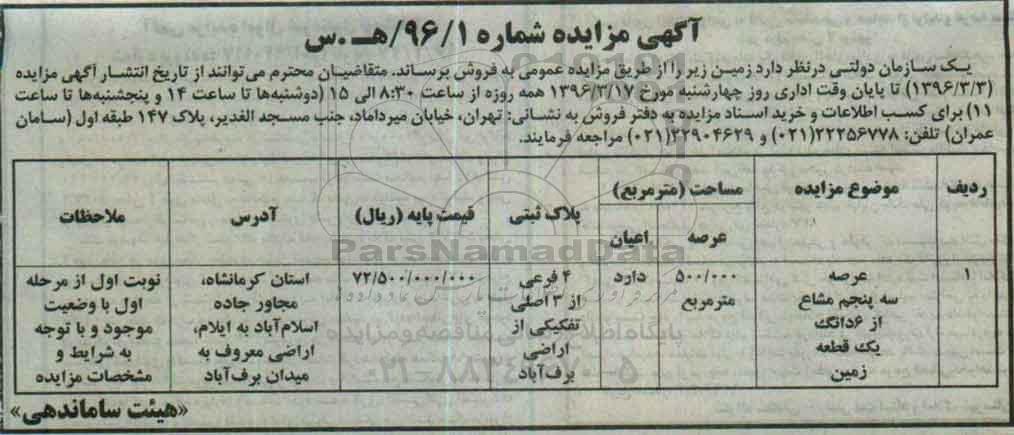 آگهی مزایده شماره ۹۶/۱/هـ.س
یک سازمان دولتی درنظر دارد زمین زیر را از طریق مزایده عمومی به فروش برساند. متقاضیان محترم می‌توانند از تاریخ انتشار آگهی مزایده
(۱۳۹۶/۳/۳) تا پایان وقت اداری روز چهارشنبه مورخ ۱۳۹۶/۳/۱۷ همه روزه از ساعت ۸:۳۰ الی ۱۵ (دوشنبه‌ها تا ساعت ۱۴ و پنجشنبه‌ها تا ساعت
۱۱) برای کسب اطلاعات و خرید اسناد مزایده به دفتر فروش به نشانی: تهران، خیابان میرداماد، جنب مسجد الغدیر، پلاک ۱۴۷ طبقه اول (سامان
عمران) تلفن: ۲۲۲۵۶۷۷۸(۰۲۱) و ۲۲۹۰۴۶۲۹(۰۲۱) مراجعه فرمایند.
ردیف موضوع مزایده مساحت (مترمربع) پلاک ثبتی قیمت پایه (ریال) آدرس ملاحظات
عرصه اعیان
۱ عرصه ۵۰۰/۰۰۰ دارد ۴ فرعی ۷۲/۵۰۰/۰۰۰/۰۰۰ استان کرمانشاه، نوبت اول از مرحله
سه پنجم مشاع مترمربع از ۳ اصلی مجاور جاده اول با وضعیت
از ۶دانگ تفکیکی از اسلام‌آباد به ایلام، موجود و با توجه
یک قطعه اراضی اراضی معروف به به شرایط و
زمین برف‌آباد میدان برف‌آباد مشخصات مزایده
«هیئت ساماندهی»
ParsNamadData